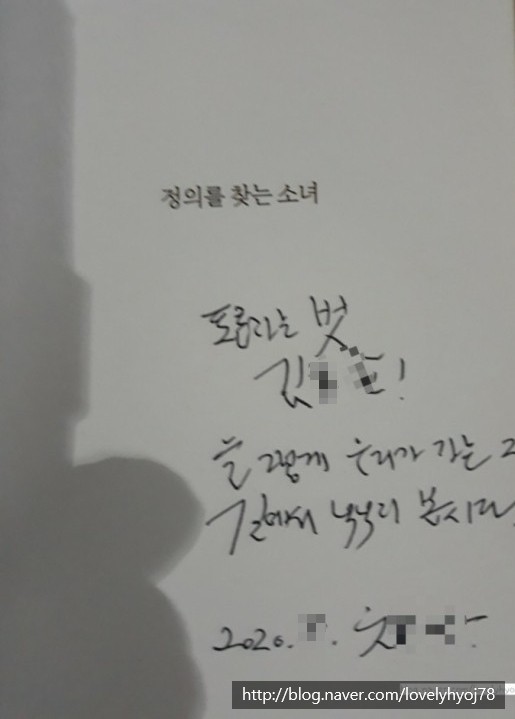 정의를 찾는 소녀
벗
김 !
늘 그렇게 우리가 가는 그
길에서 봅시다.
2020.
http://blog.naver.com/lovelyhyoj78